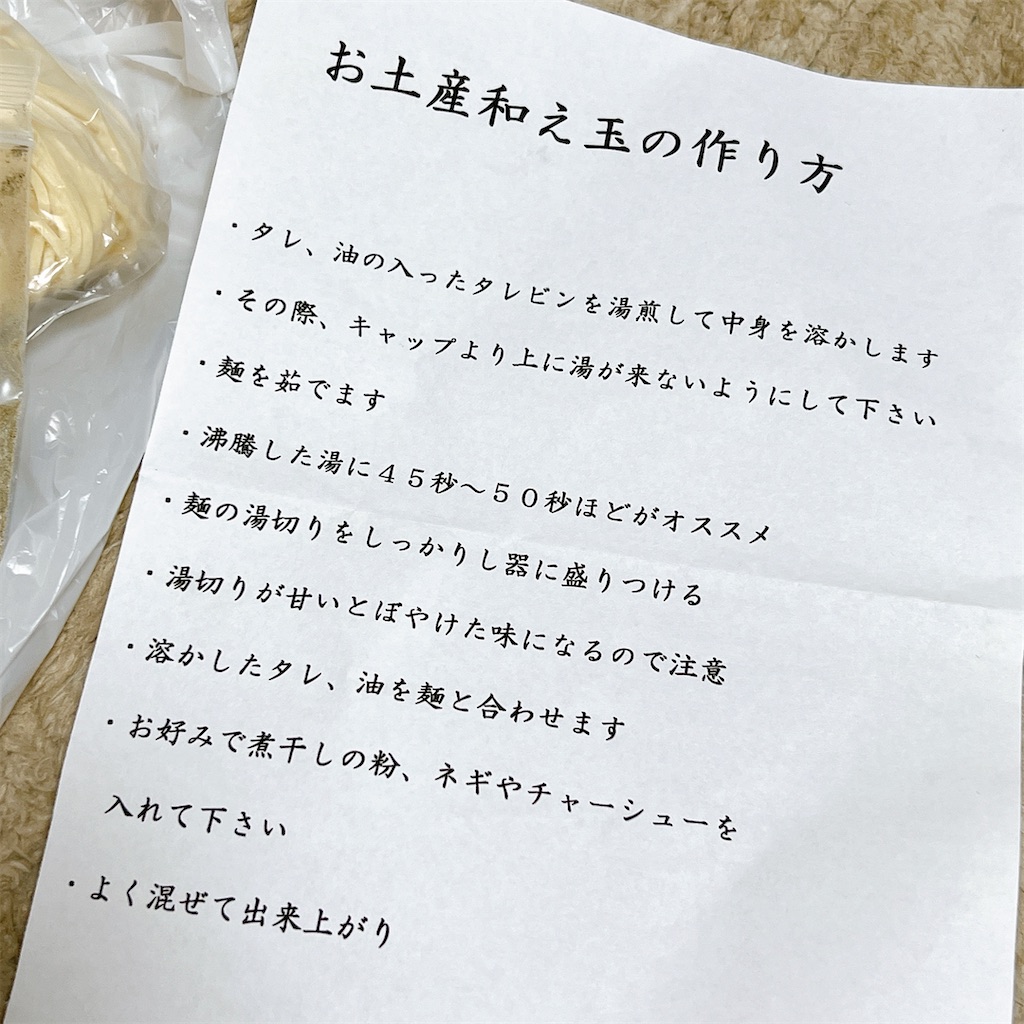 お土産和え玉の作り方
・タレ、油の入ったタレビンを湯煎して中身を溶かします
・その際、キャップより上に湯が来ないようにして下さい
・麺を茹でます
・沸騰した湯に４５秒～５０秒ほどがオススメ
・麺の湯切りをしっかりし器に盛りつける
・湯切りが甘いとぼやけた味になるので注意
・溶かしたタレ、油を麺と合わせます
・お好みで煮干しの粉、ネギやチャーシューを
入れて下さい
・よく混ぜて出来上がり